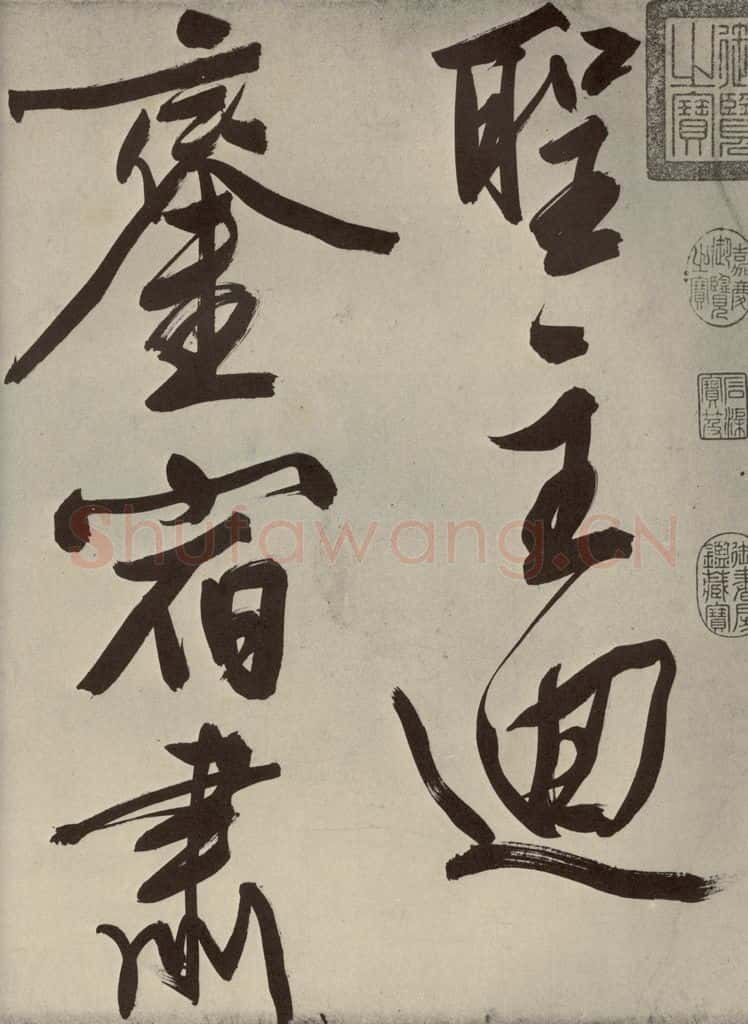 聖主迴
鑾宿肅
御覽之寶
嘉慶御覽之寶
石渠寶笈
御書房鑑藏寶
Shufawang.CN